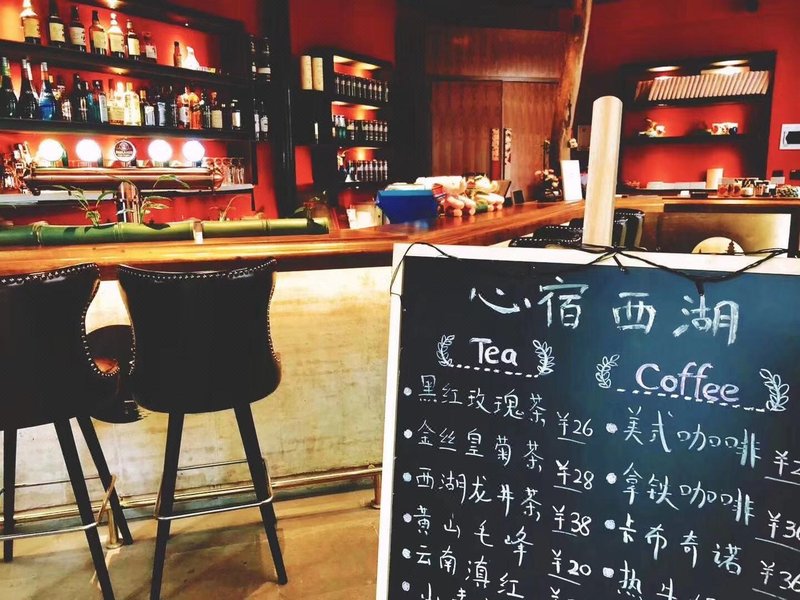 心宿西湖
Tea
黑红玫瑰茶 ¥26
金丝皇菊茶 ¥28
西湖龙井茶 ¥38
黄山毛峰 ¥20
云南滇红
Coffee
美式咖啡
拿铁咖啡
卡布奇诺 ¥36
热牛